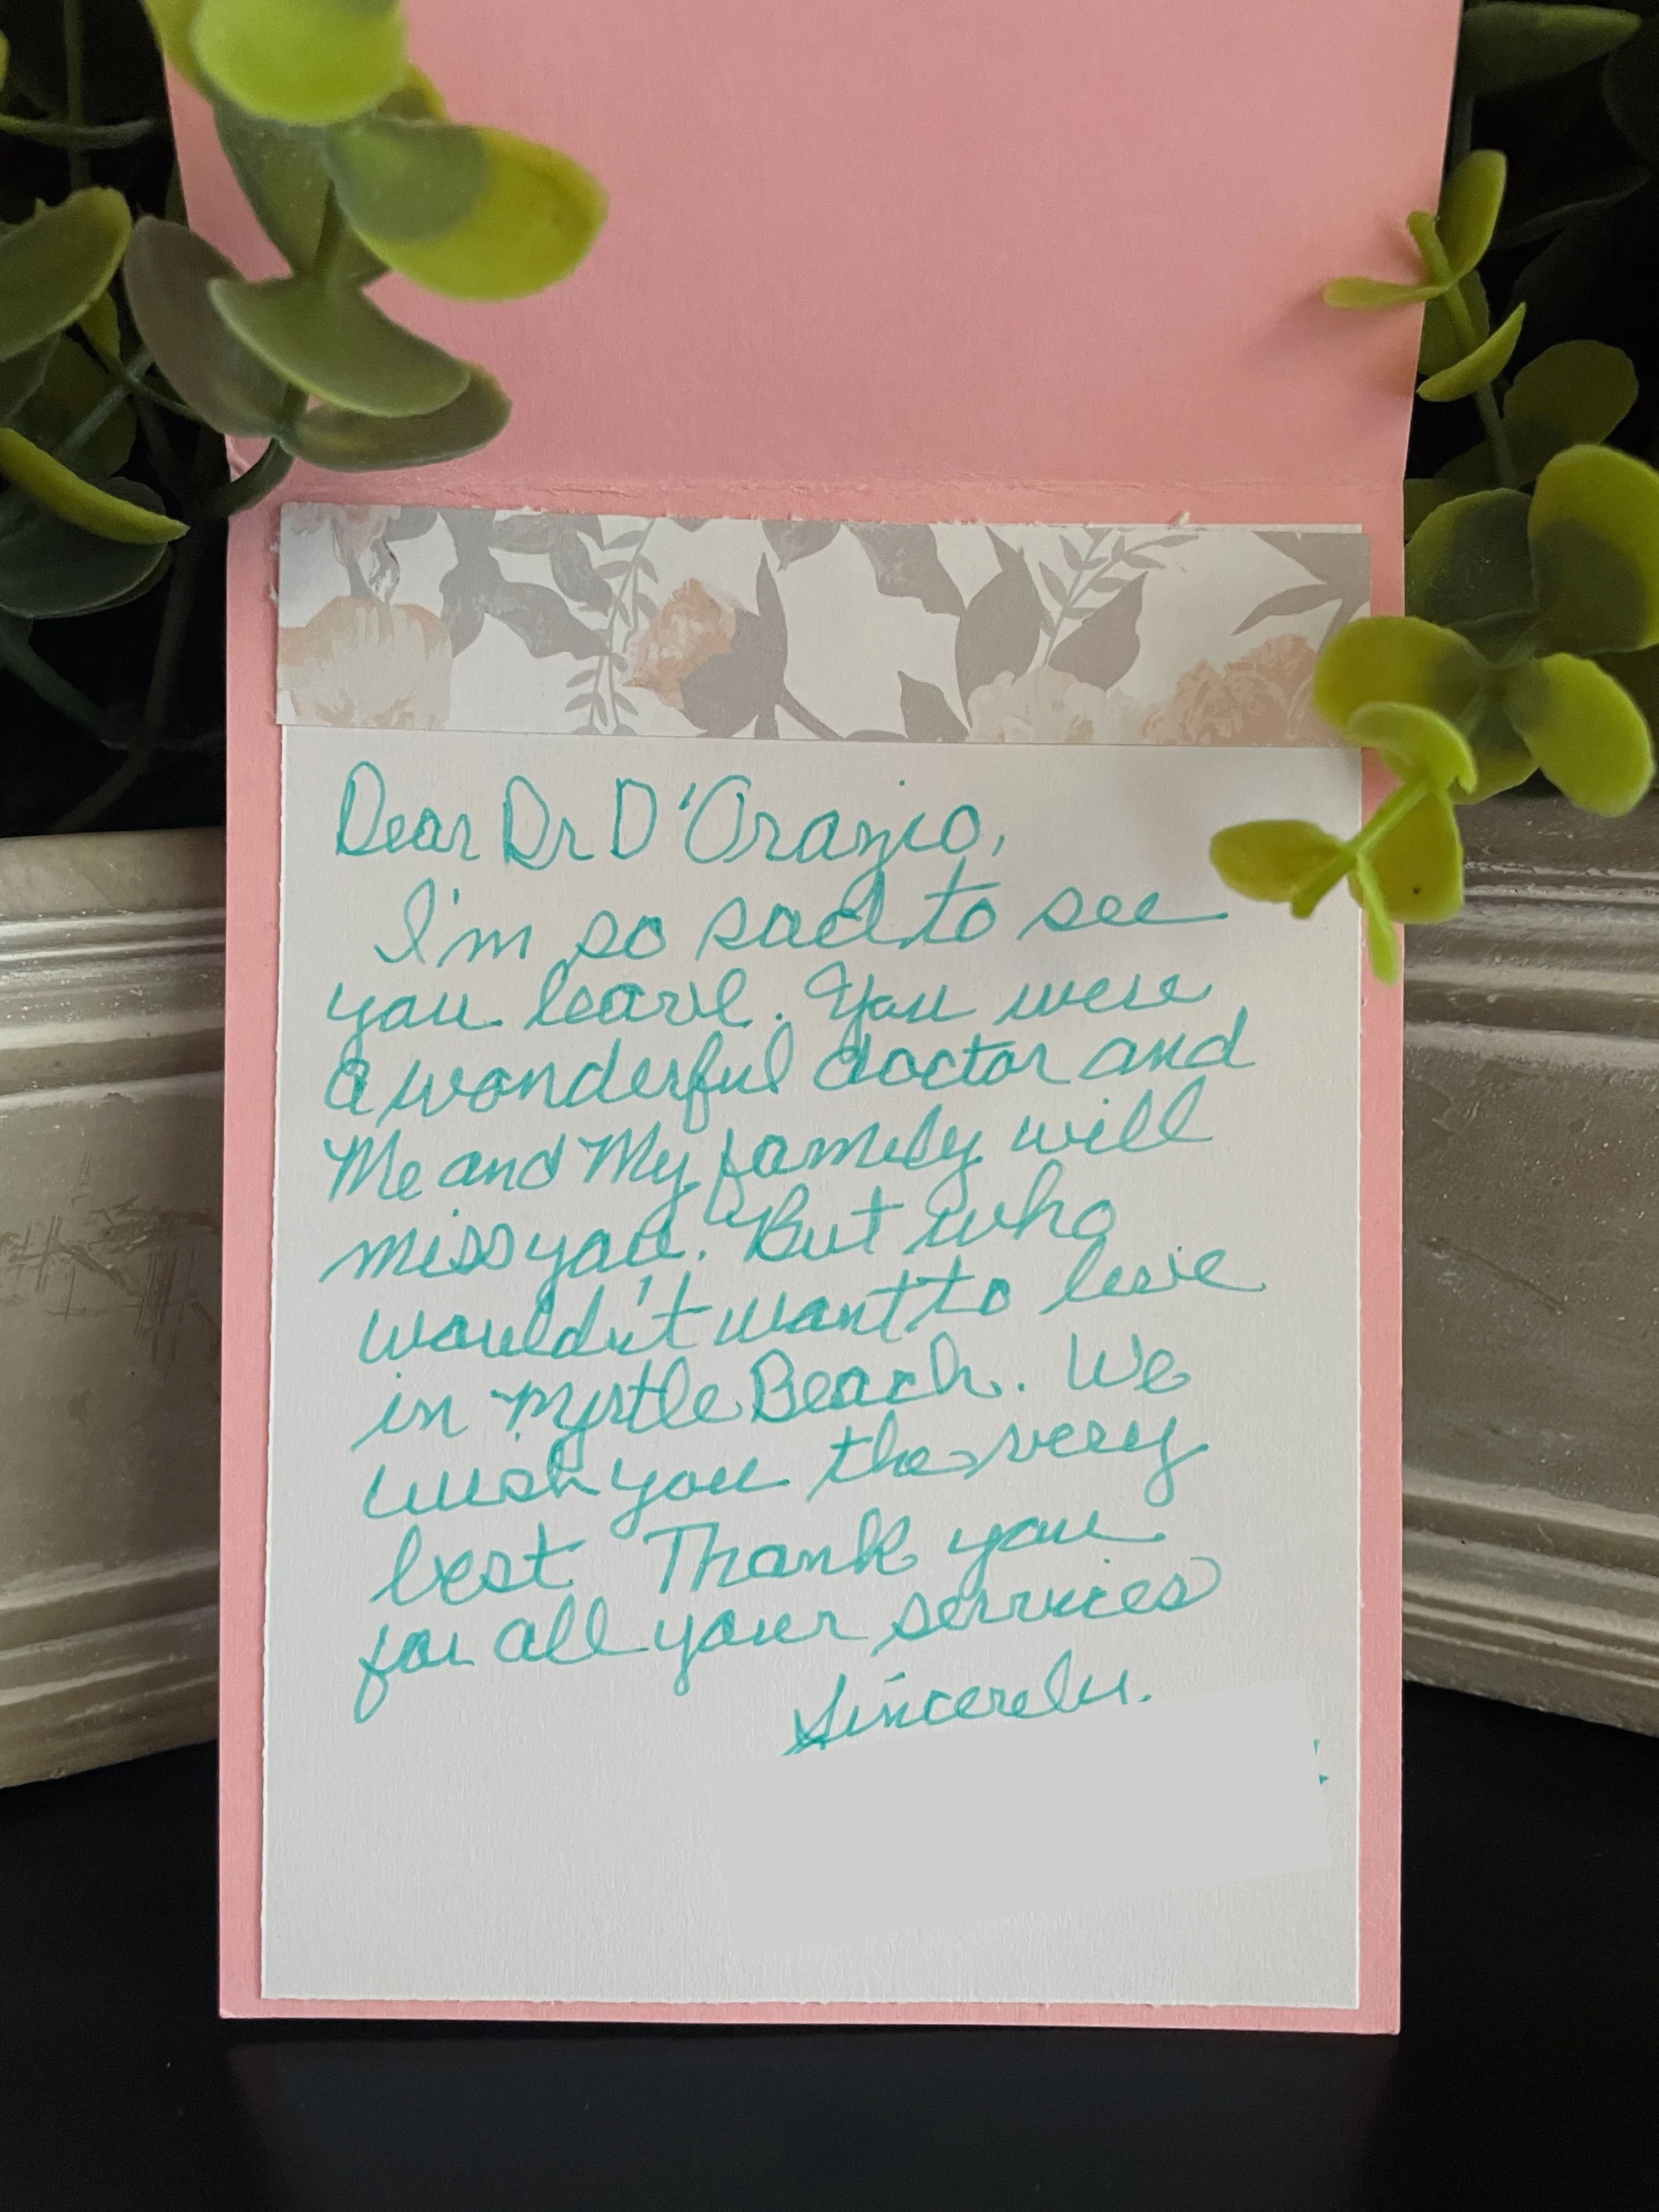 Dear Dr D'Orazio,
I'm so sad to see
you leave. You were
a wonderful doctor and
Me and My family will
miss you. But who
wouldn't want to live
in Myrtle Beach. We
wish you the very
best Thank you
for all your services
Sincerely.